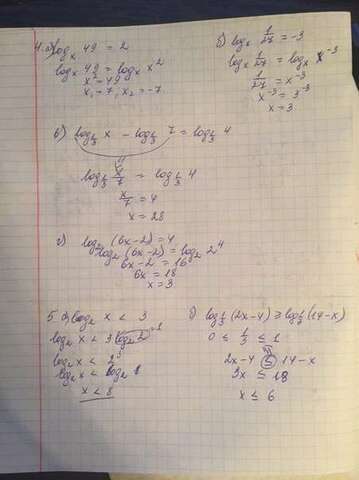 4. а) log_x 49 = 2
log_x 49 = log_x x²
x² = 49
x₁ = 7, x₂ = -7
б) log_x 1/27 = -3
log_x 1/27 = log_x x⁻³
1/27 = x⁻³
x⁻³ = 3⁻³
x = 3
в) log_1/3 x - log_1/3 7 = log_1/3 4
log_1/3 x/7 = log_1/3 4
x/7 = 4
x = 28
г) log₂ (6x-2) = 4
log₂ (6x-2) = log₂ 2⁴
6x - 2 = 16
6x = 18
x = 3
5. а) log₂ x < 3
log₂ x < 3 log₂ 2 = 1
log₂ x < 2³
log₂ x < log₂ 8
x < 8
б) log_1/3 (2x-4) ≥ log_1/3 (14-x)
0 ≤ 1/3 ≤ 1
2x-4 ≤ 14-x
3x ≤ 18
x ≤ 6